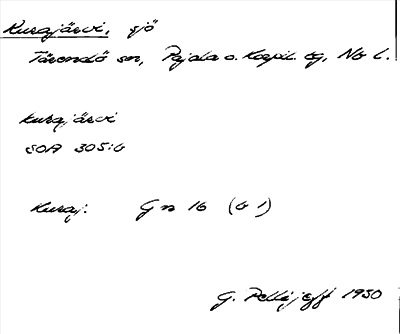 Kurajärvi, sjö
Tärendö sn, Pajala o. Korpil. tg, Nb l.
kurajärvi
SOA 305:6
Kuraj: G n 16 (b 1)
G. Pellijeff 1950